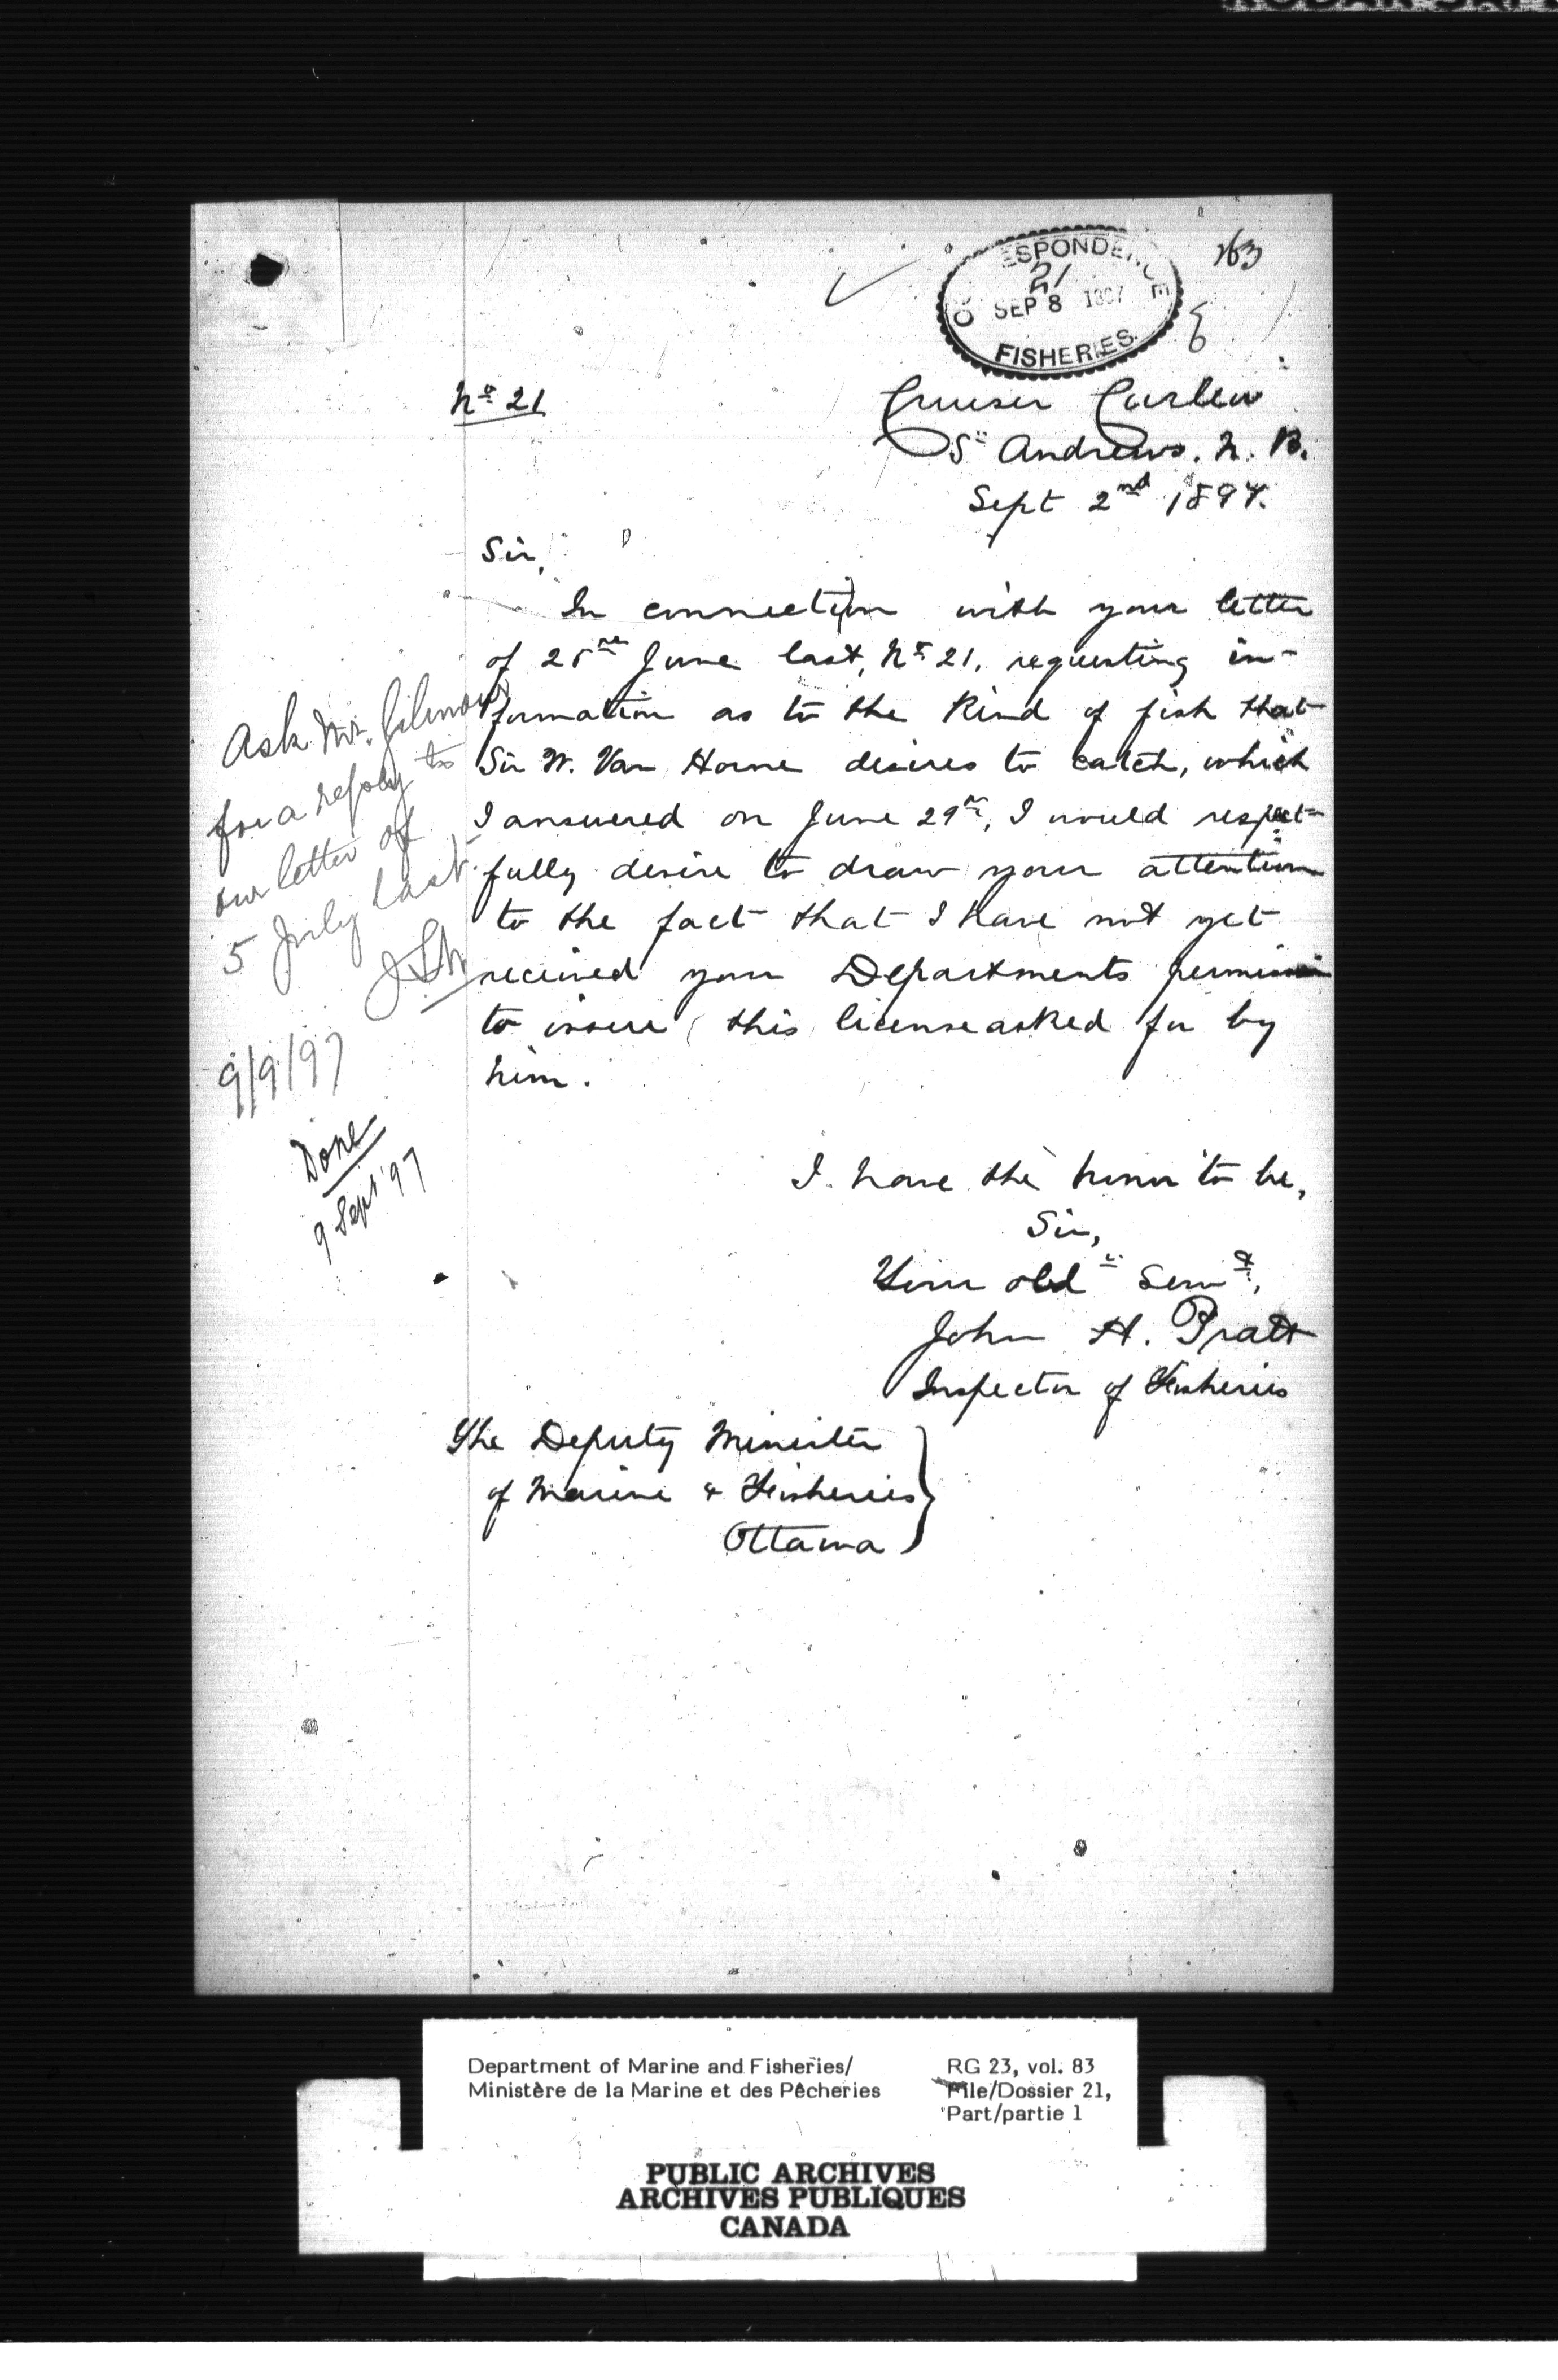 163
CORRESPONDENCE
21
SEP 8 1897
FISHERIES.
No 21
Cruiser Curlew
St Andrews. N. B.
Sept 2nd 1897.
Sir,
In connection with your letter
of 25th June last, No 21, requesting in-
formation as to the Kind of fish that
Sir W. Van Horne desires to catch, which
I answered on June 29th, I would respect-
fully desire to draw your attention
to the fact that I have not yet
received your Departments permission
to issue this license asked for by
him.
I have the honor to be,
Sir,
Your obdt Servt,
John H. Pratt
Inspector of Fisheries
The Deputy Minister
of Marine & Fisheries
Ottawa
Ask Mr. Gilmour
for a reply to
our letter of
5 July last
9/9/97
Done
9 Sept '97
Department of Marine and Fisheries/
Ministère de la Marine et des Pêcheries
RG 23, vol. 83
File/Dossier 21,
Part/partie 1
PUBLIC ARCHIVES
ARCHIVES PUBLIQUES
CANADA